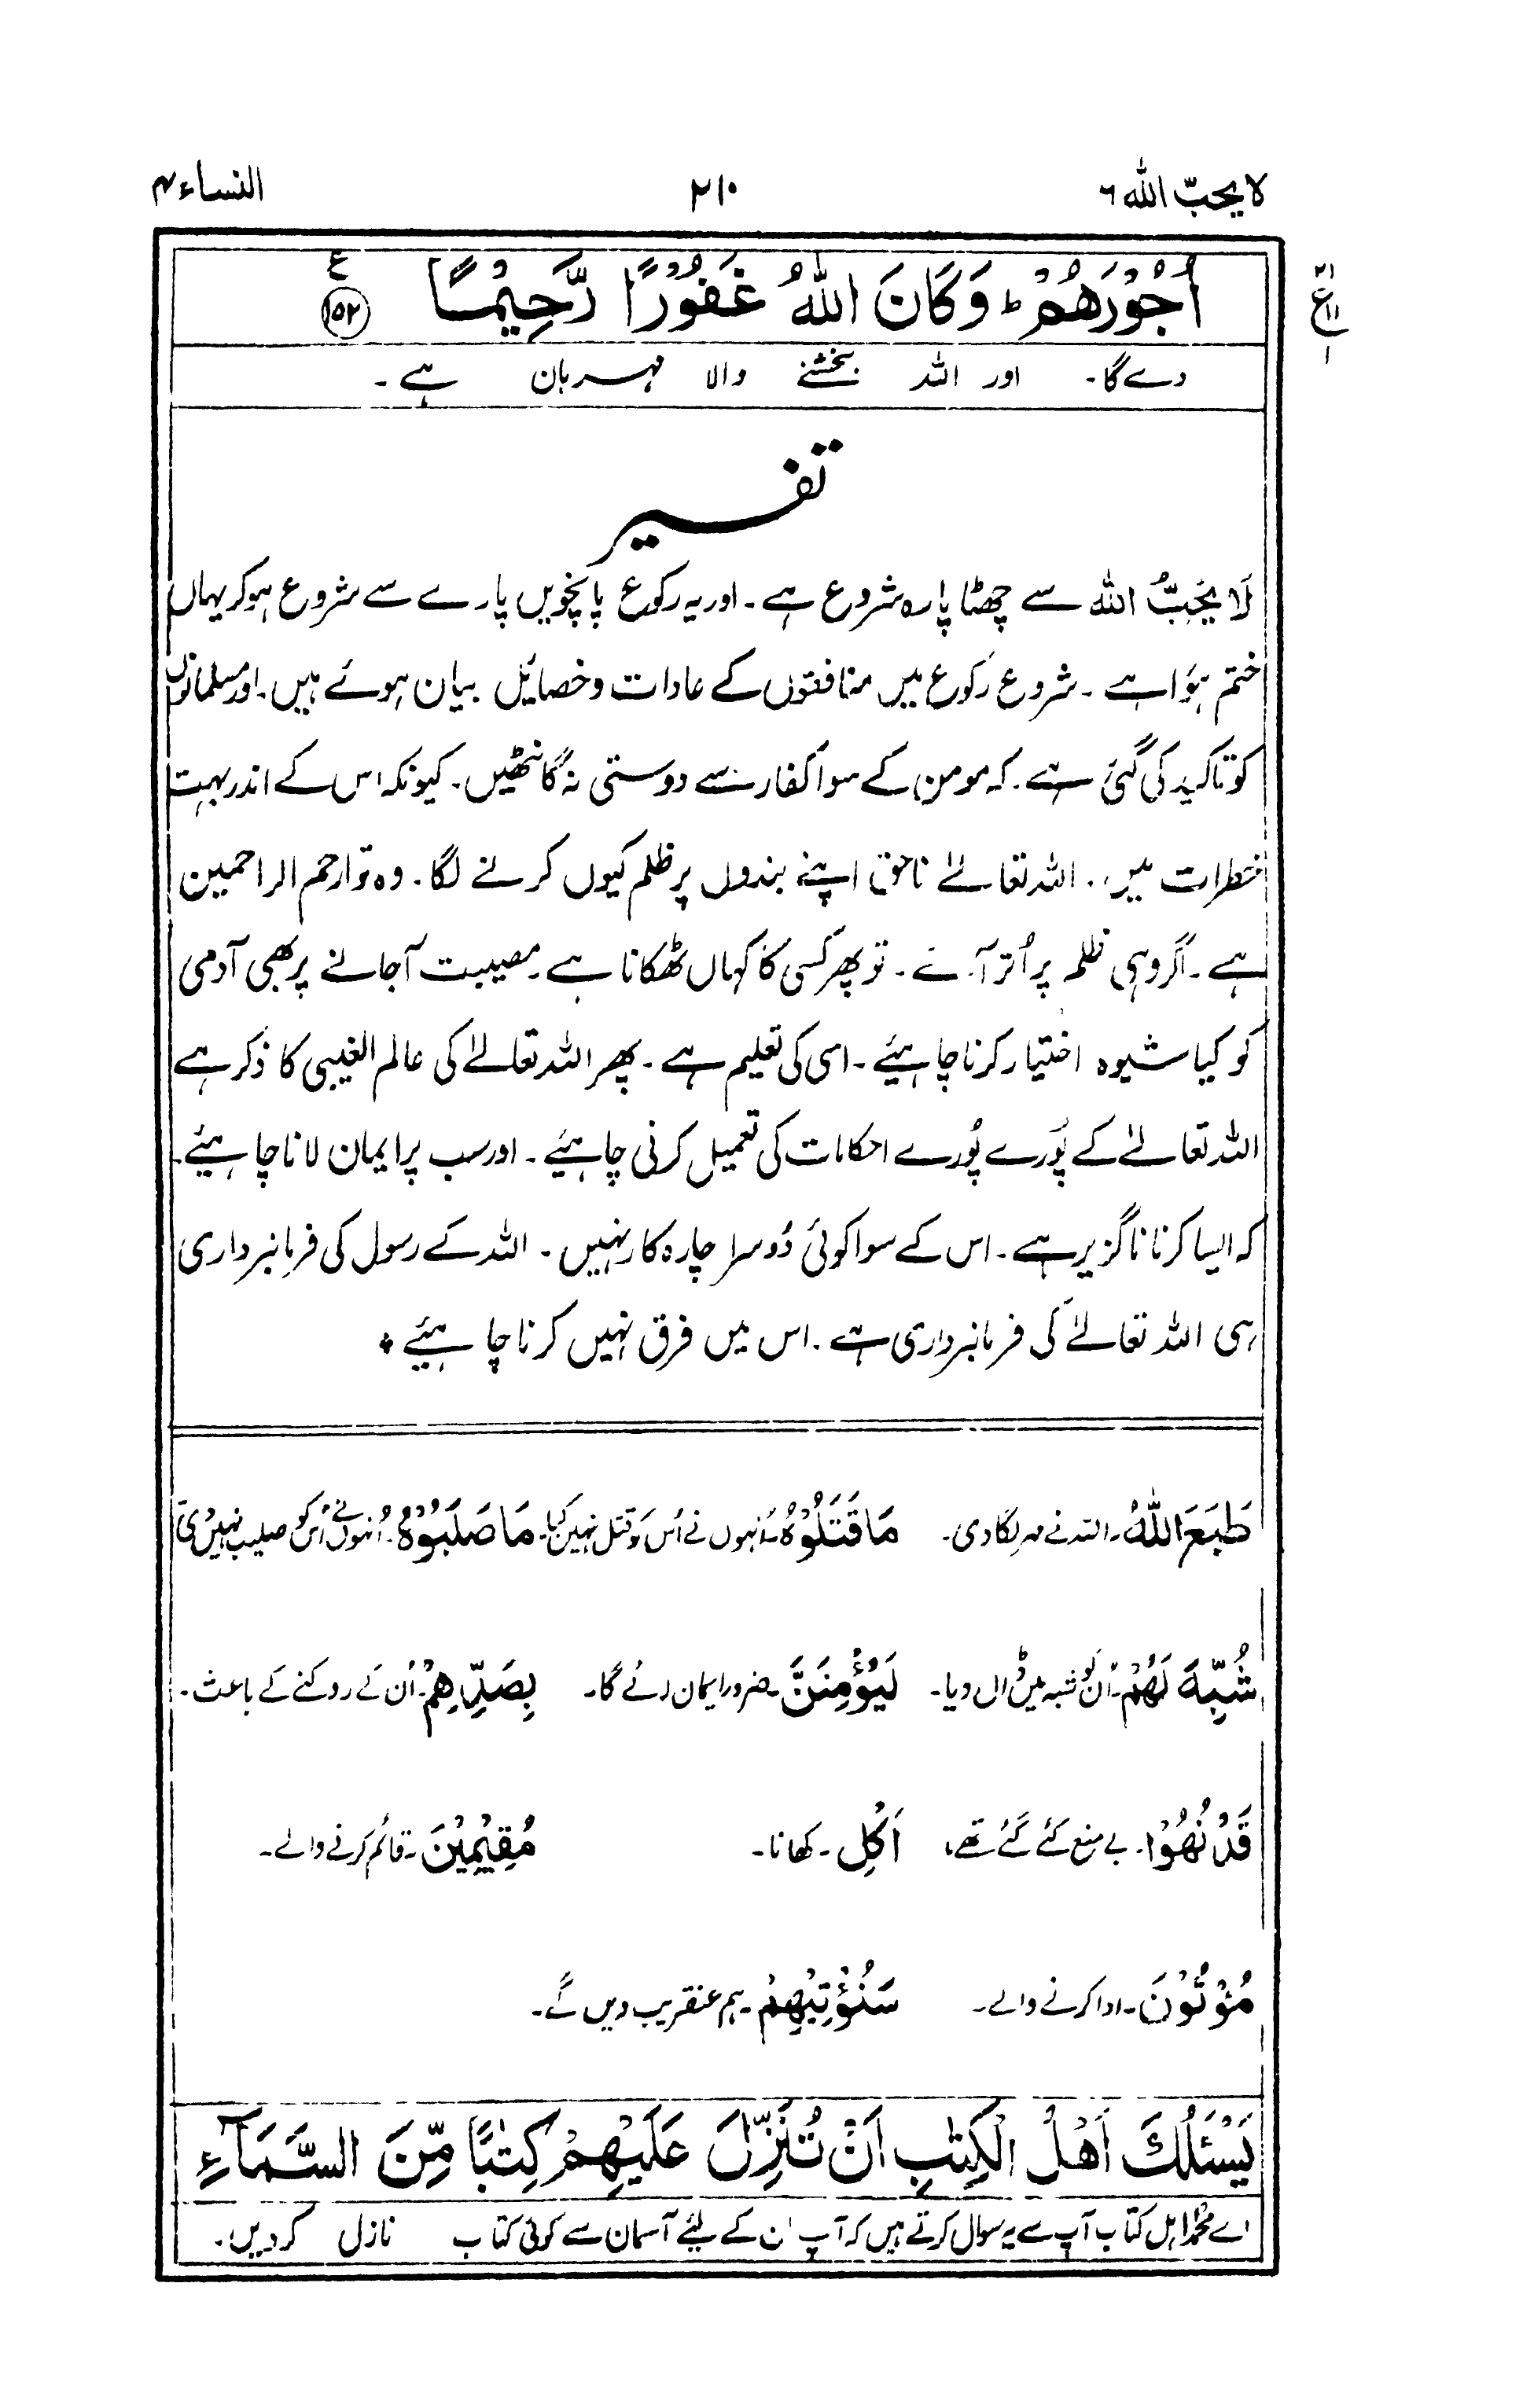 لا يحبّ الله ٦
٢١٠
النساء ٤
اُجُوْرَهُمْ ؕ وَكَانَ اللّٰهُ غَفُوْرًا رَّحِيْمًا ١٥٢ ع
٢١
ع ١١
١
دے گا۔ اور اللہ بخشنے والا مہربان ہے۔
تفسیر
لَا یُحِبُّ اللّٰہ سے چھٹا پارہ شروع ہے۔ اور یہ رکوع پانچویں پارے سے شروع ہوکر یہاں
ختم ہؤا ہے۔ شروع رکوع میں منافقوں کے عادات و خصائل بیان ہوئے ہیں۔ اور مسلمانوں
کو تاکید کی گئی ہے۔ کہ مومن کے سوا کفار سے دوستی نہ گانٹھیں۔ کیونکہ اس کے اندر بہت
خطرات ہیں۔ اللہ تعالےٰ ناحق اپنے بندوں پر ظلم کیوں کرنے لگا۔ وہ تو ارحم الراحمین
ہے۔ اگر وہی ظلم پر اُتر آئے۔ تو پھر کسی کا کہاں ٹھکانا ہے۔ مصیبت آجانے پر بھی آدمی
کو کیا شیوہ اختیار کرنا چاہیئے۔ اسی کی تعلیم ہے۔ پھر اللہ تعالےٰ کی عالم الغیبی کا ذکر ہے
اللہ تعالےٰ کے پُورے پُورے احکامات کی تعمیل کرنی چاہیئے۔ اور سب پر ایمان لانا چاہیئے۔
کہ ایسا کرنا ناگزیر ہے۔ اس کے سوا کوئی دُوسرا چارہ کار نہیں۔ اللہ کے رسول کی فرمانبرداری
ہی اللہ تعالےٰ کی فرمانبرداری ہے۔ اس میں فرق نہیں کرنا چاہیئے ٭
طَبَعَ اللّٰهُ۔ اللہ نے مہر لگا دی۔ مَا قَتَلُوْهُ۔ اُنہوں نے اُس کو قتل نہیں کیا۔ مَا صَلَبُوْهُ۔ اُنہوں نے اُس کو صلیب نہیں دی
شُبِّهَ لَهُمْ۔ اُن کو شبہ میں ڈال دیا۔ لَيُؤْمِنَنَّ۔ ضرور ایمان لائے گا۔ بِصَدِّهِمْ۔ اُن کے روکنے کے باعث۔
قَدْ نُهُوْا۔ بے منع کئے گئے تھے، اَكْلِ۔ کھانا۔ مُقِيْمِيْنَ۔ قائم کرنے والے۔
مُؤْتُوْنَ۔ ادا کرنے والے۔ سَنُؤْتِيْهِمْ۔ ہم عنقریب دیں گے۔
يَسْـَٔلُكَ اَهْلُ الْكِتٰبِ اَنْ تُنَزِّلَ عَلَيْهِمْ كِتٰبًا مِّنَ السَّمَآءِ
اے محمدؐ اہل کتاب آپ سے یہ سوال کرتے ہیں کہ آپ ان کے لیئے آسمان سے کوئی کتاب نازل کردیں۔